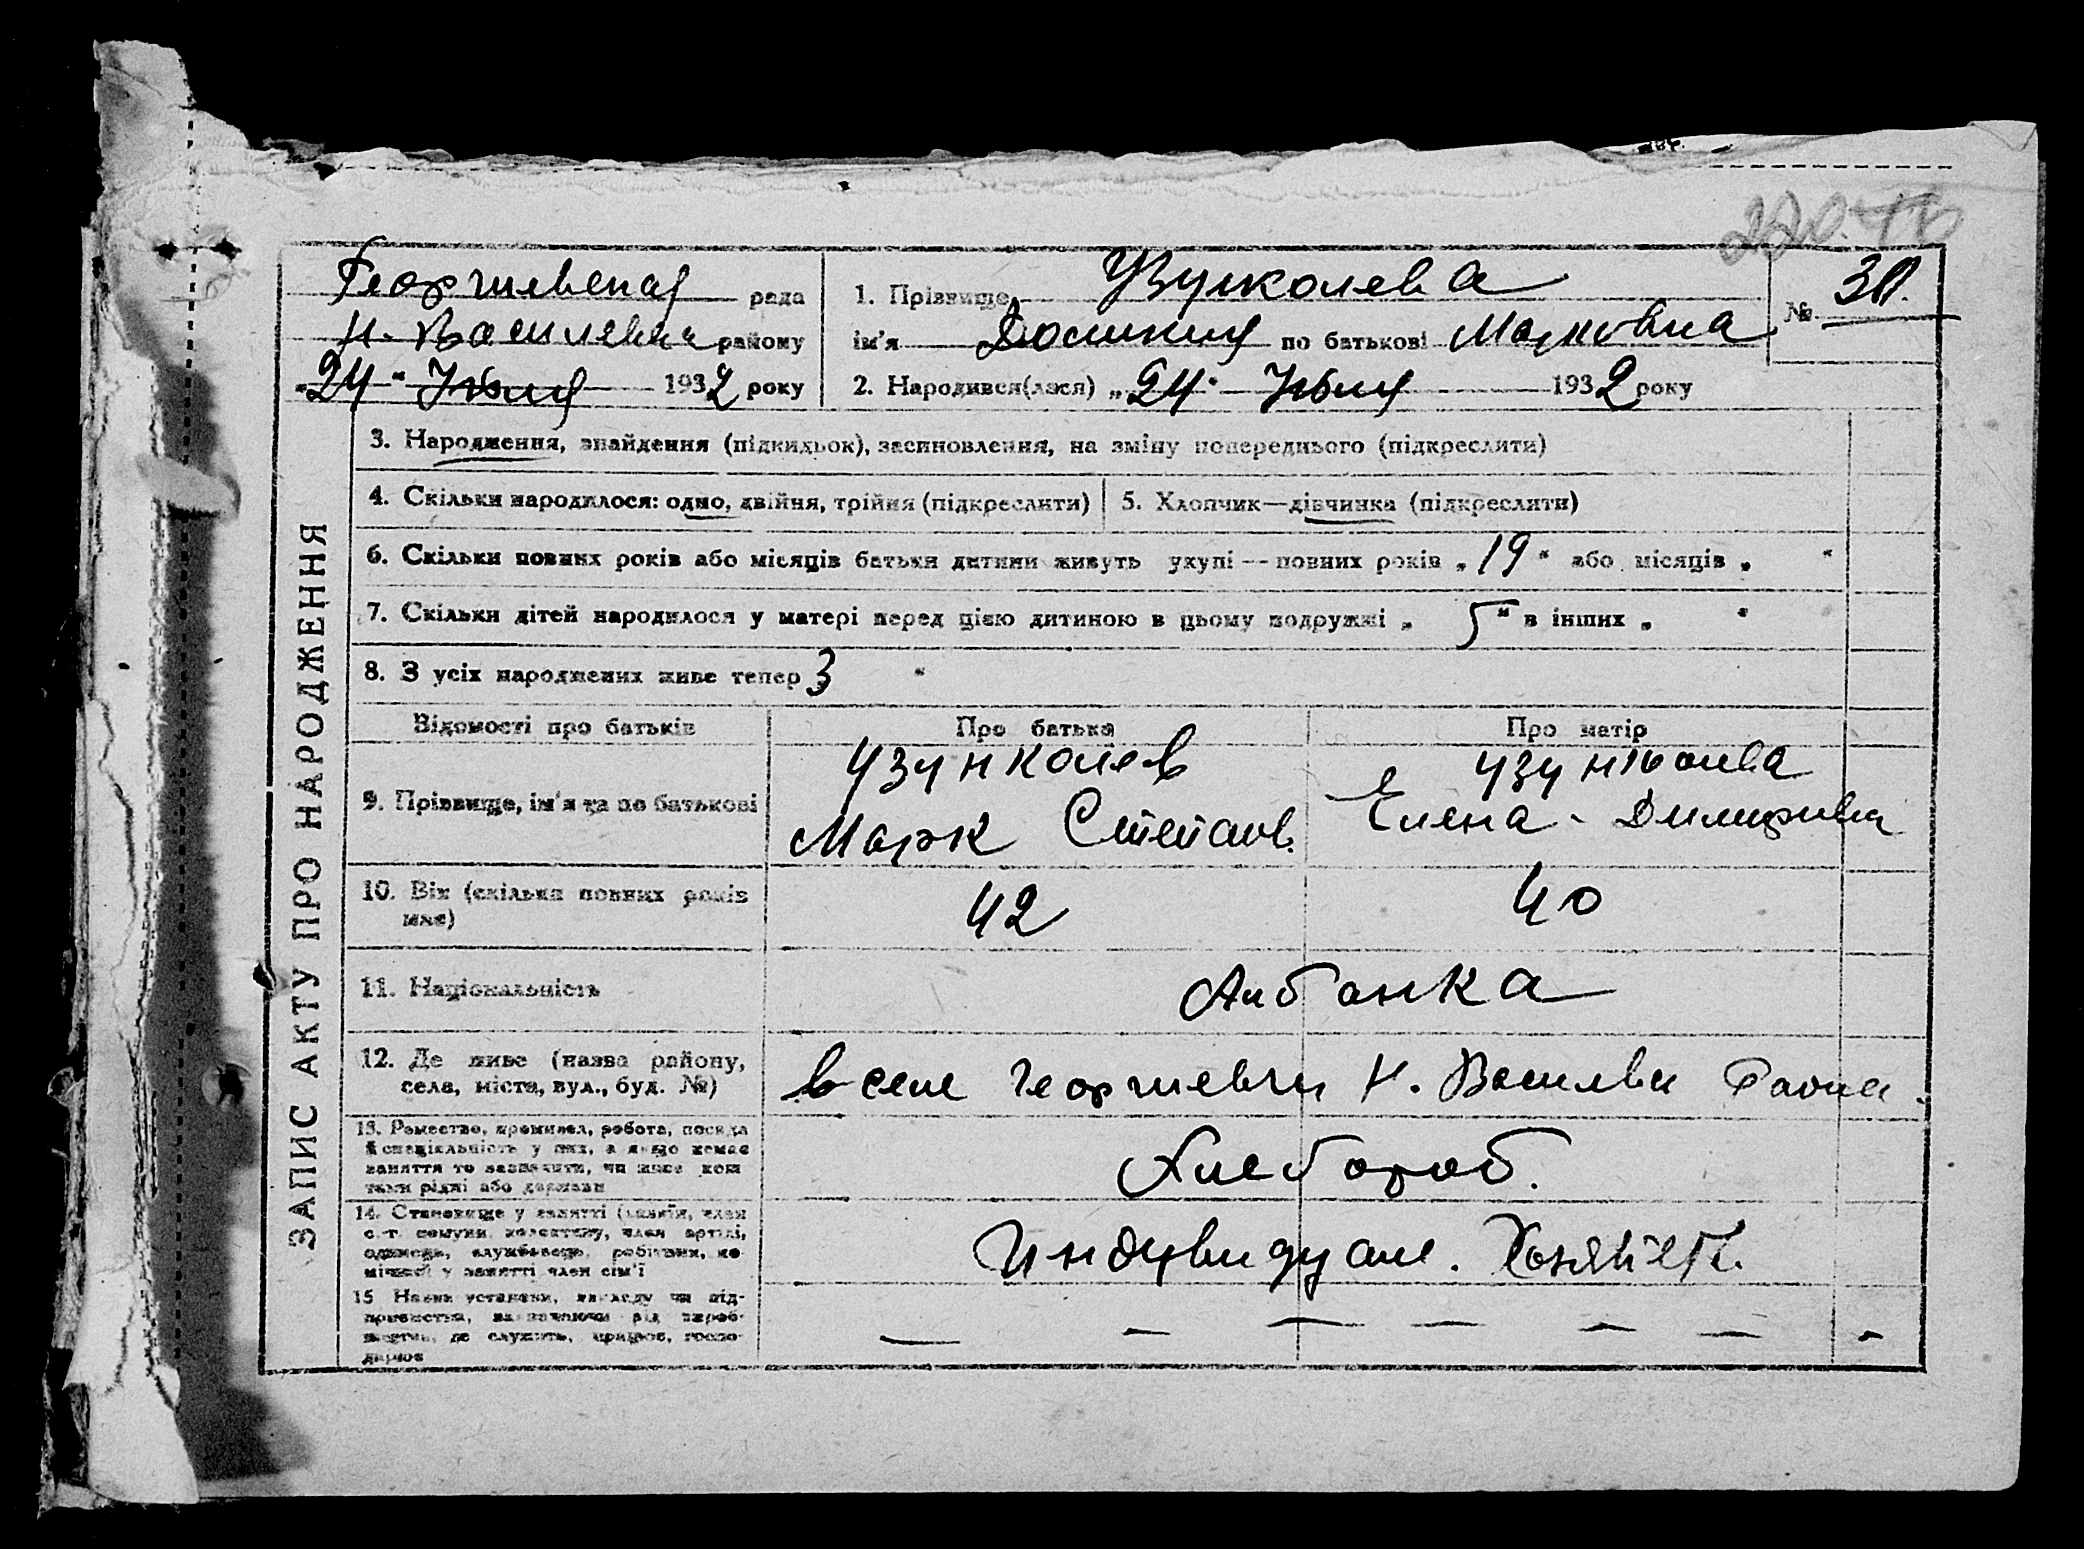 Георгиевская рада
Н. Василевки району
„24“ Июля 1932 року
1. Прізвище Узунколева
ім'я Домникия по батькові Марковна
2. Народився(лася) „24“ Июля 1932 року
№ 30.
ЗАПИС АКТУ ПРО НАРОДЖЕННЯ
3. Народження, знайдення (підкидьок), засиновлення, на зміну попереднього (підкреслити)
4. Скільки народилося: одно, двійня, трійня (підкреслити)
5. Хлопчик—дівчинка (підкреслити)
6. Скільки повних років або місяців батьки дитини живуть укупі — повних років „19“ або місяців „ “
7. Скільки дітей народилося у матері перед цією дитиною в цьому подружжі „5“ в інших „ “
8. З усіх народжених живе тепер 3 “
Відомості про батьків
Про батька
Про матір
9. Прізвище, ім'я та по батькові
Узунколев
Марк Степанов.
Узунколева
Елена - Димитривна
10. Вік (скільки повних років
має)
42
40
11. Національність
Албанка
12. Де живе (назва району,
села, міста, вул., буд. №)
в селе Георгиевки Н. Василевки Района.
13. Ремество, промисел, робота, посада
й спеціяльність у них, а якщо немає
заняття то зазначити, чи живе кош
тами рідні або держави
Хлебороб.
14. Становище у занятті (хазяїн, член
с.-г. комуни, колективу, член артілі,
одинець, службовець, робітник, по
мічний у занятті член сім'ї
Индувидуал. Хозяйств.
15 Назва установи, закладу чи під-
приємства, зазначаючи рід вироб-
ництва, де служить, працює, госпо-
дарює
— — — — — — -